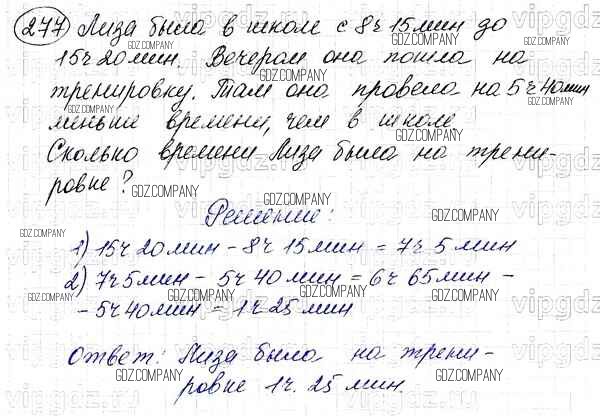 277 Лиза была в школе с 8ч 15мин до
15ч 20мин. Вечером она пошла на
тренировку. Там она провела на 5ч 40мин
меньше времени, чем в школе.
Сколько времени Лиза была на трени-
ровке?
Решение:
1) 15ч 20мин - 8ч 15мин = 7ч 5мин
2) 7ч 5мин - 5ч 40мин = 6ч 65мин -
- 5ч 40мин = 1ч 25мин
Ответ: Лиза была на трени-
ровке 1ч. 25мин